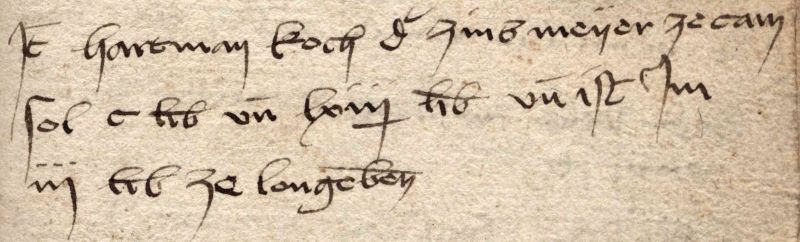 Jt hartman koch d zinsmeyer ze cam
sol c lib vn lxiiij lib vn ist Jm
iij lib ze lon geben